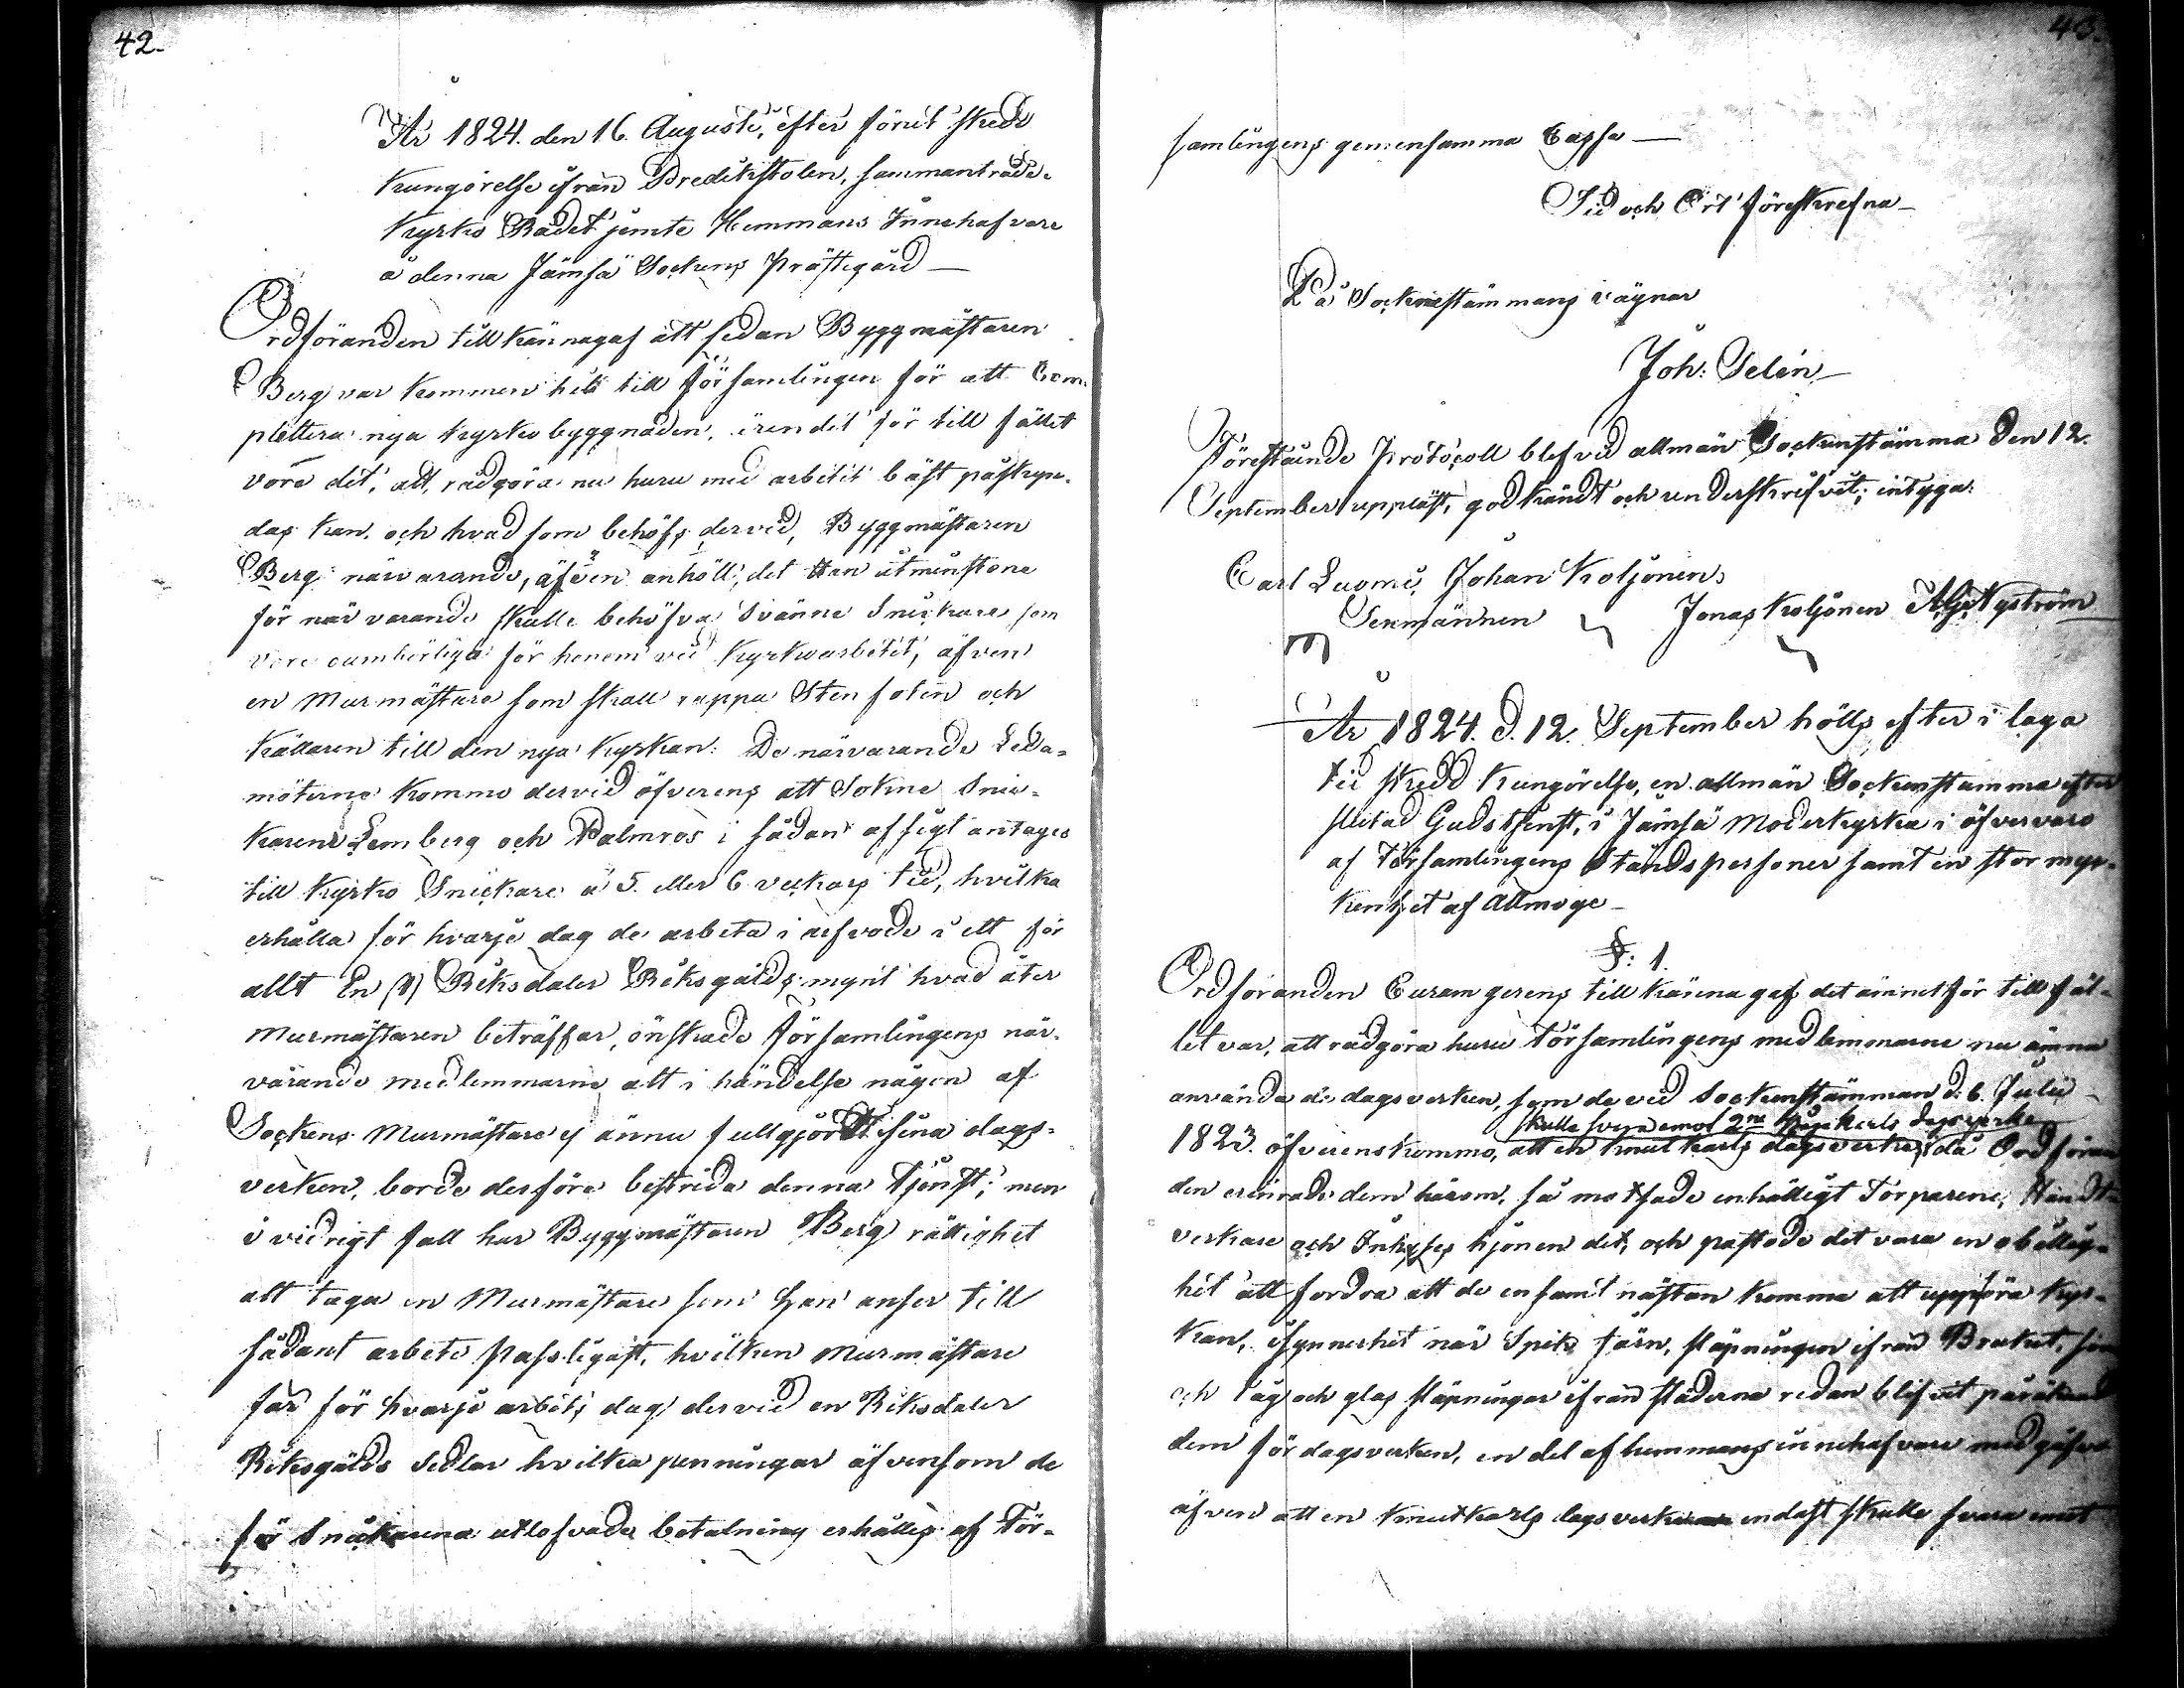 42.
År 1824. den 16. Augusti, efter förut skedd
kungörelse ifrån Predikstolen, sammanträdde
Kyrko Rådet jemte Hemmans Innehafvare
å denna Jämsä Sockens Prästegård —
Ordföranden tillkännagaf att sedan Byggmästaren
Berg var kommen hit till Församlingen för att Com-
plettera nya kyrkobyggnaden, ärendet för tillfället
vore det, att rådgöra nu huru med arbetet bäst påskyn-
das kan, och hvad som behöfs dervid, Byggmästaren
Berg närvarande, äfven anhöll, det Han åtminstone
för närvarande skulle behöfva Tvänne Snickare som
vore oumbärliga för honom vid Kyrkoarbetet, äfven
en Murmästare som skall rappa Stenfoten och
källaren till den nya kyrkan. De närvarande Leda-
möterne kommo dervid öfverens att Sokne Snic-
karena Lemberg och Palmros i sådan afsigt antages
till Kyrko Snickare å 5. eller 6 veckors tid, hvilka
erhålla för hvarje dag de arbeta i arfvode i ett för
allt En (1) Riksdaler Riksgälds mynt hvad åter
Murmästaren beträffar, önskade Församlingens när-
varande medlemmarne att i händelse någon af
Sockens Murmästare ej ännu fullgjordt sina dags-
verken, borde derföre bestrida denna tjenst; men
i vidrigt fall har Byggmästaren Berg rättighet
att taga en Murmästare som han anser till
sådant arbete passligast, hvilken Murmästare
får för hvarje arbets dag dervid en Riksdaler
Riksgälds Sedlar hvilka penningar äfvensom de
för Snickarena utlofvade betalning erhålles af För-
43.
samlingens gemensamma Cassa —
Tid och Ort föreskrefna —
På Socknestämmans vägnar
Joh: Selin —
Förestående Protocoll blef vid allmän Sockenstämma den 12.
September uppläst, godkändt och underskrifvit, intyga:
Carl Luomi, Johan Koljonen,
Sexmännen Jonas Koljonen Nyström
År 1824. d. 12. September hölls efter i laga
tid skedd kungörelse, en allmän Sockenstämma efter
slutad Gudstjenst, i Jämsä Moderkyrka i öfvervaro
af Församlingens Ståndspersoner samt en stor myc-
kenhet af Allmoge —
§: 1.
Ordföranden Curam gerens tillkännagaf det ämnet för tillfäl-
let var, att rådgöra huru Församlingens medlemmarne nu ämna
använda de dagsverken, som de vid Sockenstämman d. 6. Julii
skulle svara emot 2ne dagsverke
1823. öfverenskommo, att en knutkarls dagsverke, då Ordföran
den erinrade dem härom, så motsade enhälligt Torparene, Handt-
verkare och Inhyses hjonen det, och påstodo det vara en obillig-
het att fordra att de ensamt nästan komma att uppföra kyr-
kan, isynnerhet när Spik, järn, släpningen ifrån Bruket,
och tåg och glas släpningar ifrån städerna redan blifvit påräknad
dem för dagsverken, en del af hemmans innehafvare medgåfvo
äfven att en knutkarls dagsverke endast skulle svara emot